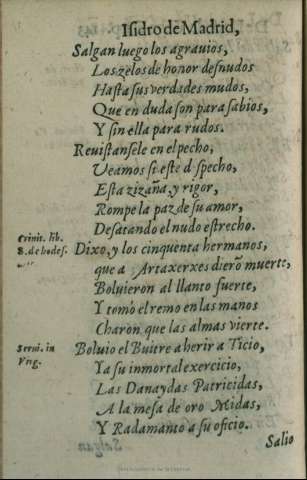 Isidro de Madrid,
Salgan luego los agrauios,
Los zelos de honor desnudos
Hasta sus verdades mudos,
Que en duda son para sabios,
Y sin ella para rudos.
Reuistansele en el pecho,
Veamos si este d specho,
Esta zizaña, y rigor,
Rompe la paz de su amor,
Desatando el nudo estrecho.
Crinit. lib.
8. de hodes.
Dixo, y los cinquenta hermanos,
que a Artaxerxes dierõ muerte,
Boluieron al llanto fuerte,
Y tomò el remo en las manos
Charon que las almas vierte.
Serui. in
Virg.
Boluio el Buitre a herir a Ticio,
Y a su inmortal exercicio,
Las Danaydas Patricidas,
A la mesa de oro Midas,
Y Radamanto a su oficio.
Salio